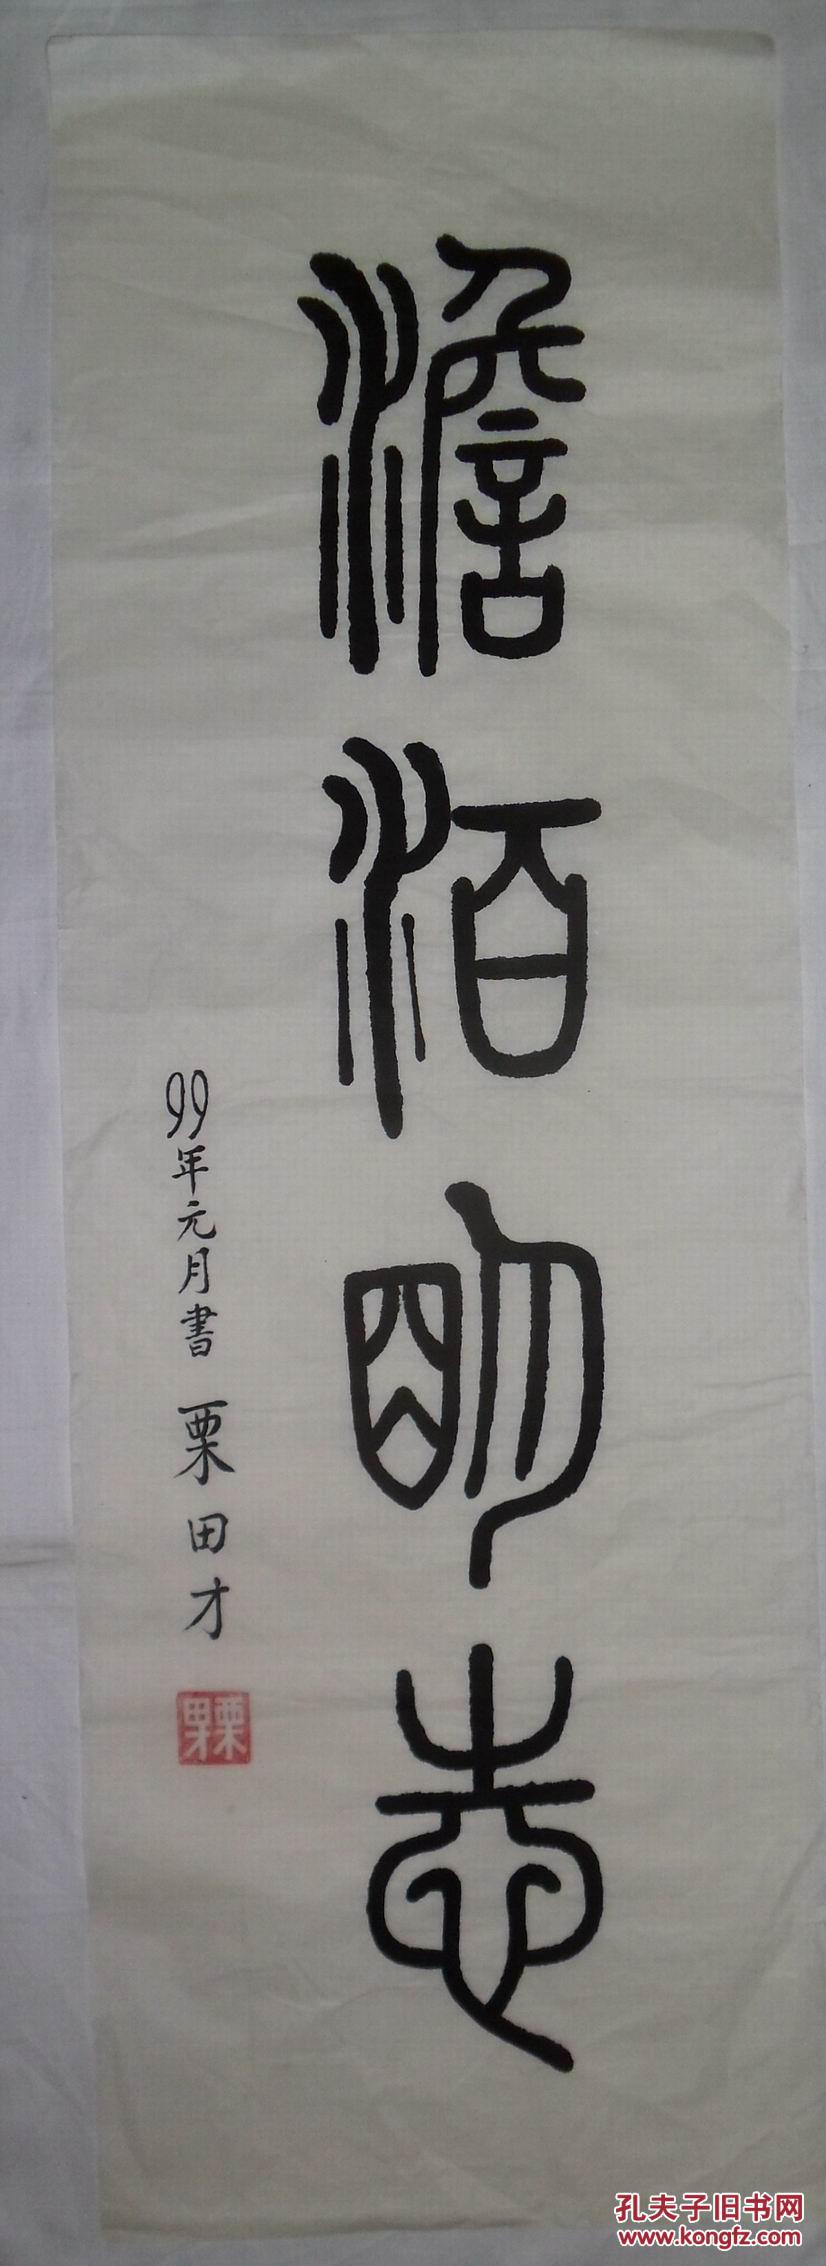 澹泊明志
99年元月書 栗田才
栗田才
孔夫子旧书网
www.kongfz.com